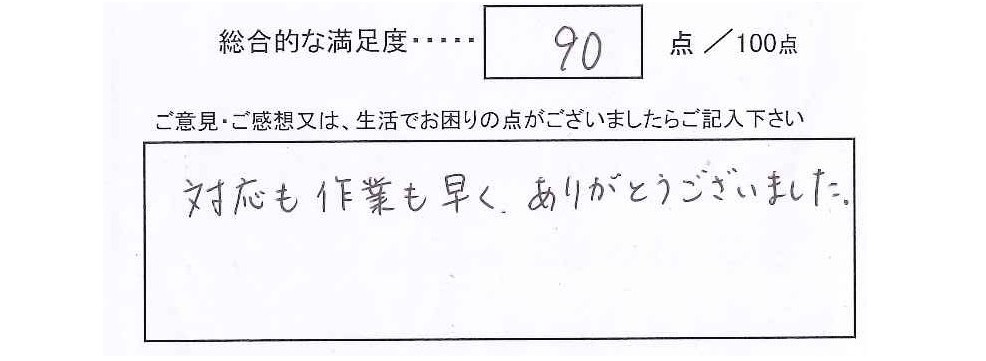 総合的な満足度‥‥‥ 90 点 ／100点
ご意見・ご感想又は、生活でお困りの点がございましたらご記入下さい
対応も作業も早く、ありがとうございました。